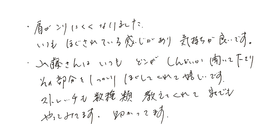 ・肩がこりにくくなりました。
いつも ほぐされている感じがあり 気持ちが良いです。
・藤さんは いつも どこが しんどいか 聞いて下さり
その部分を しっかり ほぐしてくれて嬉しいです。
ストレッチも 数種類 教えてくれて 家でも
やってみてます。 助かってます。